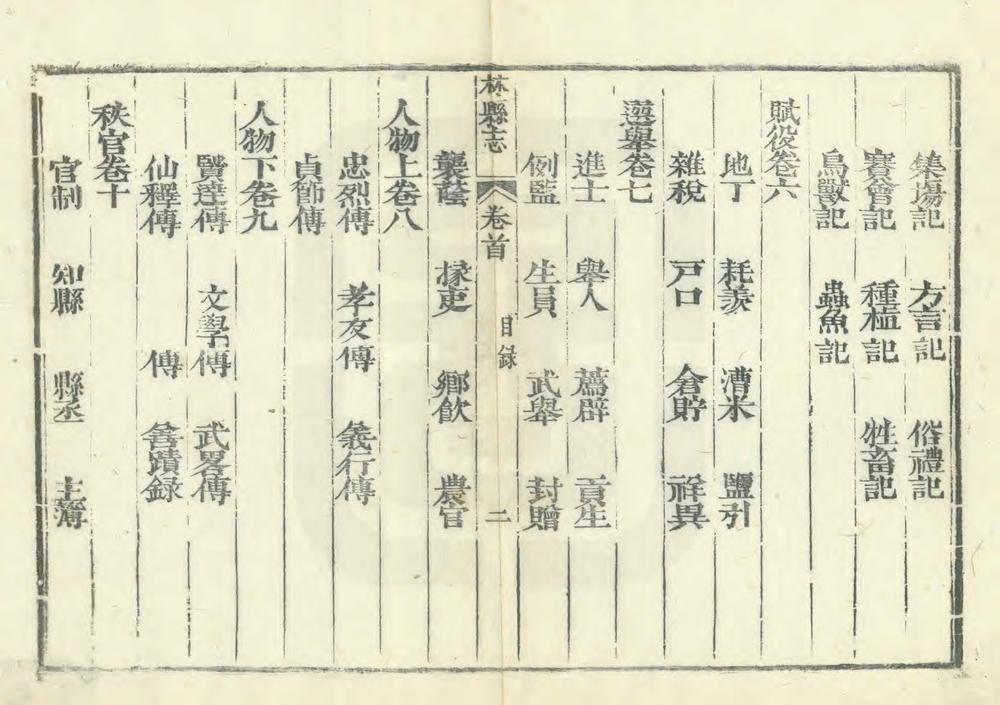 集場記 方言記 俗禮記
賽會記 種植記 牲畜記
鳥獸記 蟲魚記
賦役卷六
地丁 耗羨 漕米 鹽引
雜稅 戸口 倉貯 祥異
選舉卷七
進士 舉人 薦辟 貢生
例監 生員 武舉 封贈
林縣志 卷首 目録 二
襲蔭 掾吏 鄉飲 農官
人物上卷八
忠烈傳 孝友傳 義行傳
貞節傳
人物下卷九
賢達傳 文學傳 武畧傳
仙釋傳 傳 善蹟録
秩官卷十
官制 知縣 縣丞 主簿